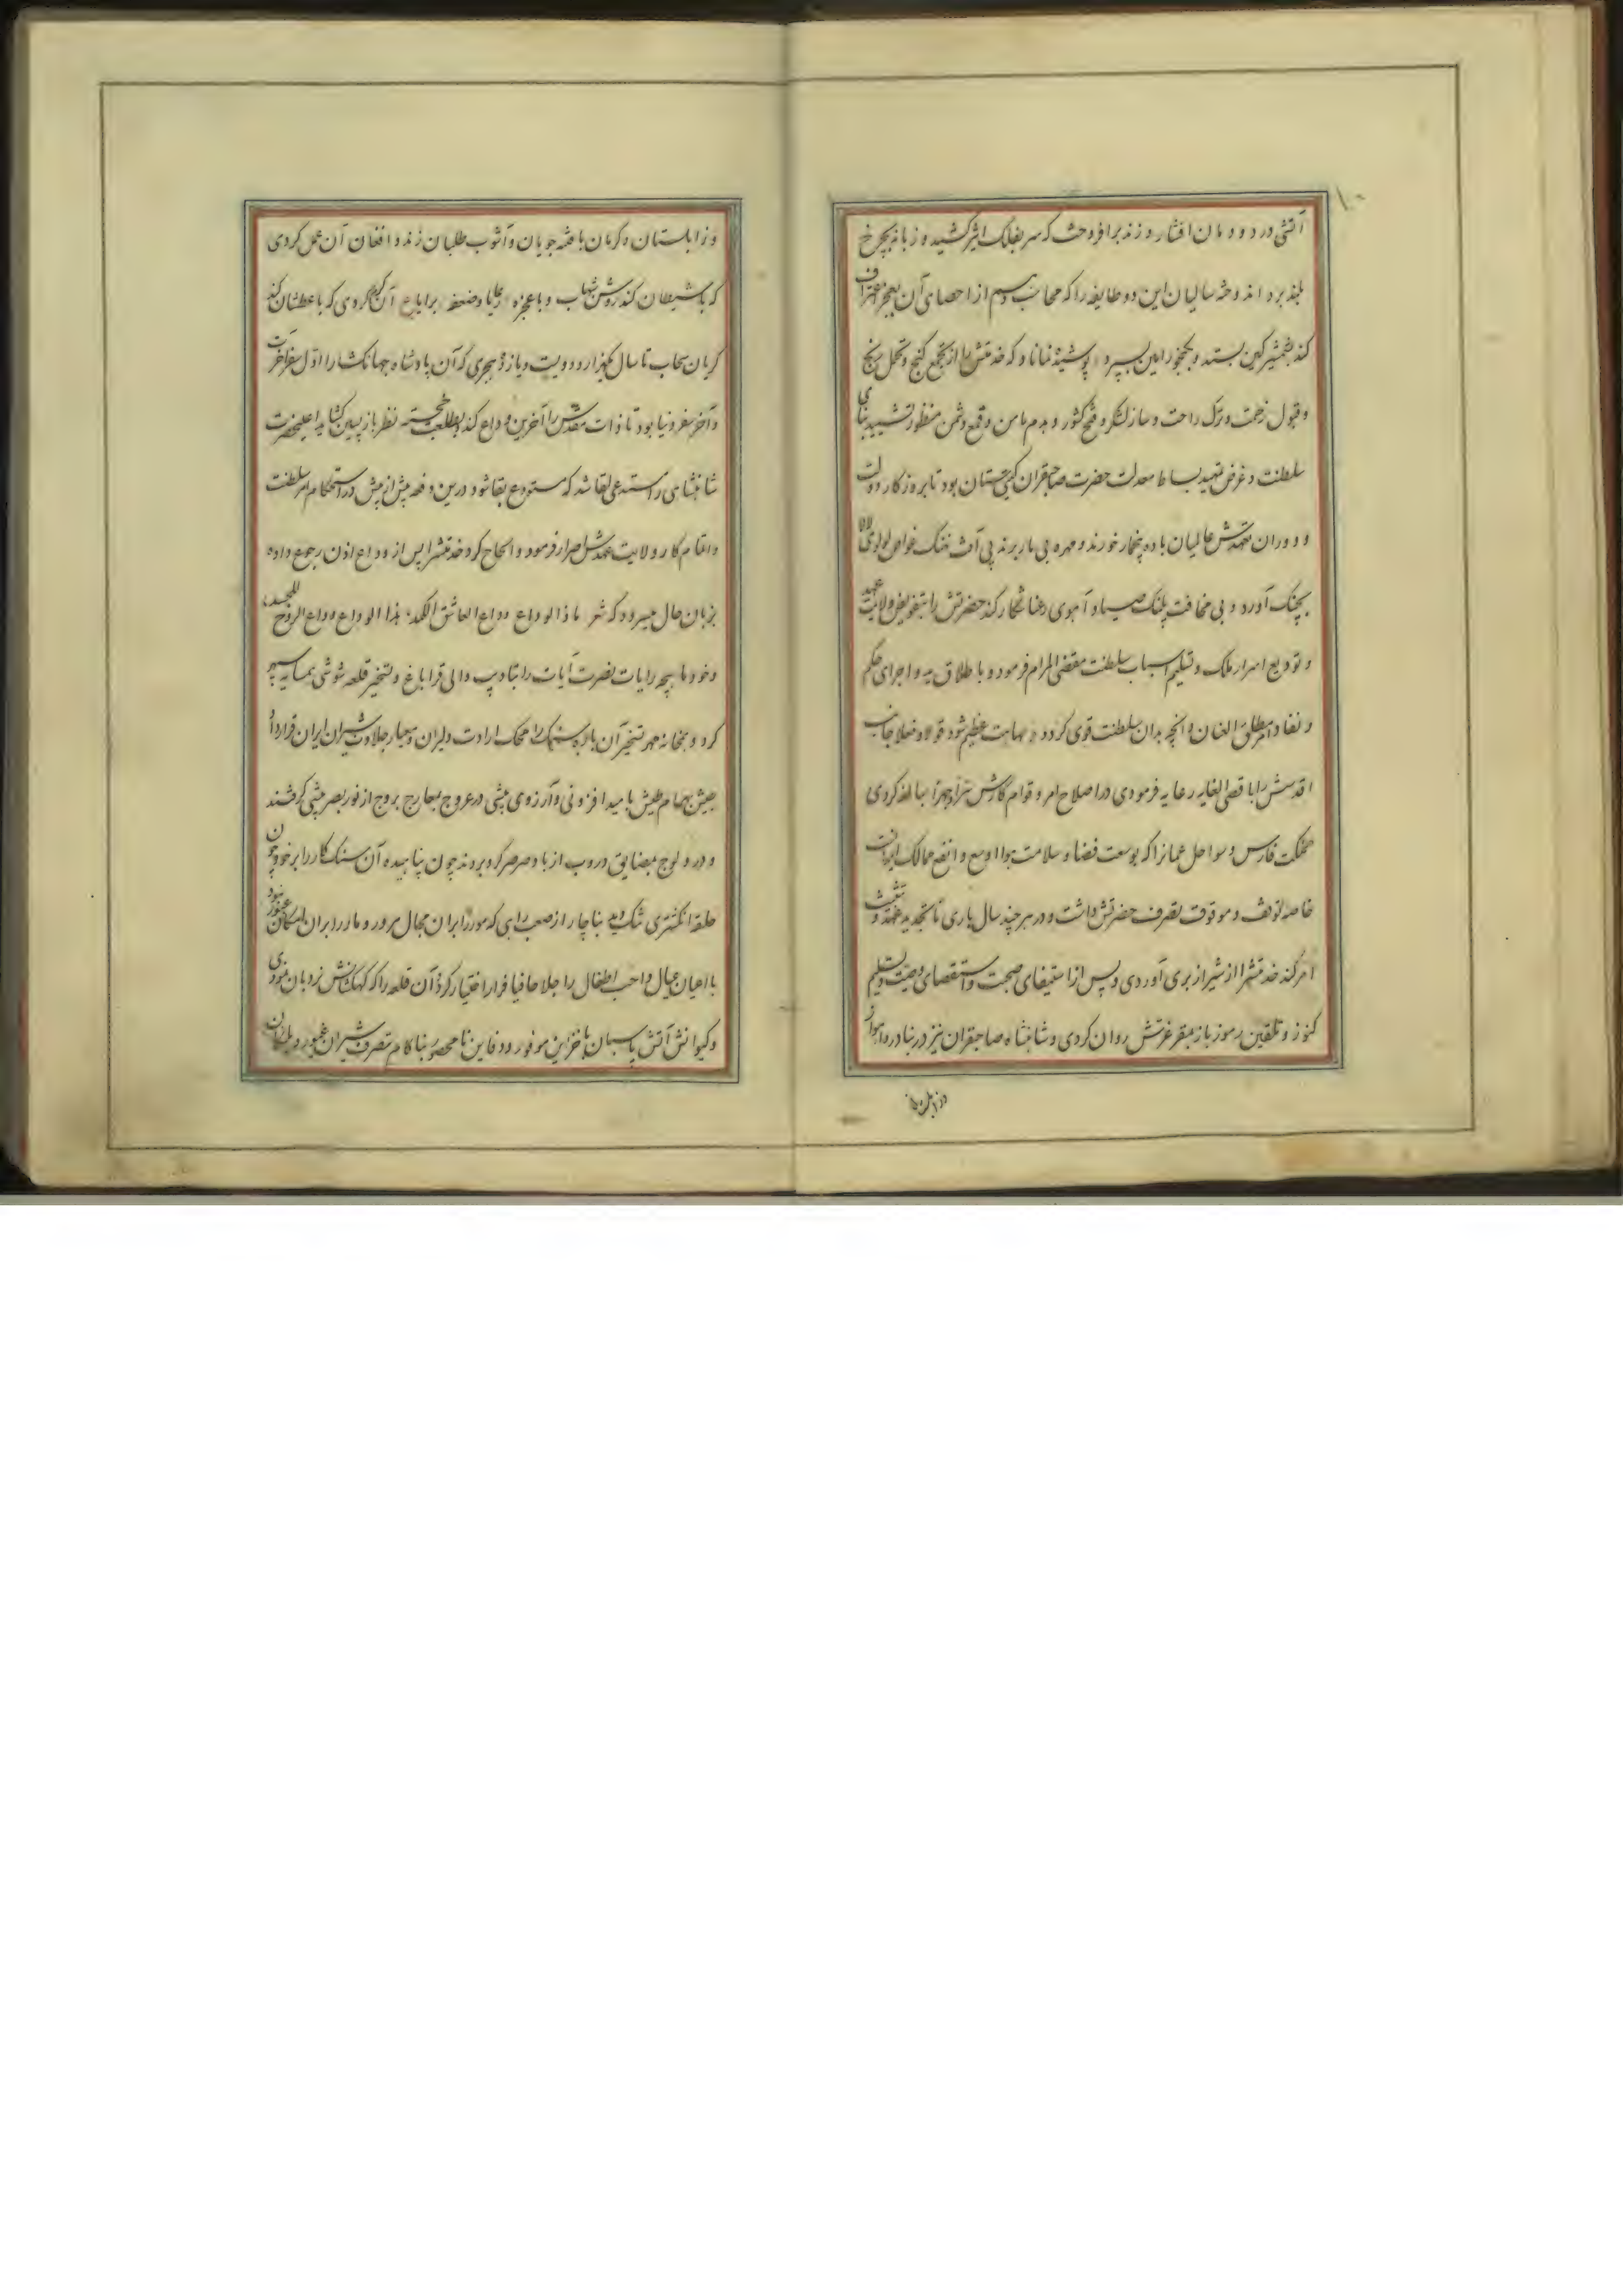 ۱۰
آتشی در دودمان افشار و زند برافروخت که سر بفلک اثیر کشید و زبانه بچرخ
بلند برد اندوخته سالیان این دو طایفه را که محاسب وهم از احصای آن بعجز اعتراف
کند بشمشیر کین بستد و بگنجور امین سپرد پوشیده نماناد که خدمتش را از جمع گنج و تحمل رنج
و قبول زحمت و ترک راحت و ساز لشکر و فتح کشور و هدم مامن و قمع دشمن منظور تشیید بنای
سلطنت و غرض تمهید بساط معدلت حضرت صاحبقران گیتی ستان بود تا بروزکار دولت
و دوران عالمیان باده بی خمار خورند و مهره بی مار برند بی آفت نهنگ غواص لولوی لالا
بچنگ آورد و بی مخافت پلنگ صیاد آهوی رعنا شکار کند حضرتش را بتفویض ولایت عهد
و تودیع اسرار ملک و تسلیم اسباب سلطنت مقضی المرام فرمود و باطلاق ید و اجرای حکم
و نفاد امر مطلق العنان و آنچه بدان سلطنت قوی گردد و مهابت عظیم شود قولا و فعلا جانب
اقدسش را باقصی الغایه رعایه فرمودی در اصلاح امر و قوام کارش سرا و جهرا مبالغه کردی
مملکت فارس و سواحل عمانرا که بوسعت فضا و سلامت هوا اوسع و انفع ممالک ایرانست
خاصه و موقوف تصرف حضرتش داشت و در هر چند سال باری تا تجدید عهد و تثبیت
امر کند خدمتشرا از شیراز بری آوردی و پس از استیفای صحبت و استقصای وصیت و تسلیم
کنوز و تلقین رموز باز بمقر عزتش روان کردی و شاهنشاه صاحبقران نیز در بنادر و اهواز
و زابلستان
و زابلستان و کرمان با فتنه جویان و آشوب طلبان زند و افغان آن عمل کردی
که با شیطان کند روشن شهاب و با عجزه رعایا و ضعفه برایا آن کردی که با عطشان کند
گریان سحاب تا سال یکهزار و دویست و یازده هجری که آن پادشاه جهانگشا را اول سفر آخرت
و آخر سفر دنیا بود تا ذات مقدسش را آخرین وداع کند و بطلعت خجسته نظر باز پسین گشاید اعلیحضرت
شاهنشاهی را استدعی لقا شد که مستودع بقا شود درین دفعه بیش از پیش در استحکام امر سلطنت
و اتمام کار ولایت عهدش اصرار فرمود و الحاح کرد خدمتشرا پس از وداع اذن رجوع داده
بزبان حال میسرود که شعر ماذا الوداع وداع العاشق الکمد هذا الوداع وداع الروح للجسد
و خود ماهچه رایات نصرت آیات را بتادیب والی قراباغ و تسخیر قلعه شوشی همسایه سپهر
کرد و بتخانه مهر تسخیر آن باره را محک ارادت دلیران و معیار جلادت شیران ایران قرارداد
جیش بهرام طیش بامید افزونی و آرزوی بیشی در عروج بمعارج بروج از نور بصر پیشی گرفتند
و در ولوج بمضایق دروب از باد صرصر گرو بردند چون پناهیده آن سنگ کار را بر خود چون
حلقه انگشتری تنگ دید بناچار از صعب راهی که مور را بر آن مجال مرور و مار را بر آن امکان عبور نبود
با اعیان عیال و احب اطفال را جلا حافیا فرار اختیار کرد آن قلعه را که کهکشانش نردبان نمودی
و کیوانش آتش پاسبان با خزاین موفور و دفاین نامحصور بناکام بتصرف شیران غیور و پلنگان